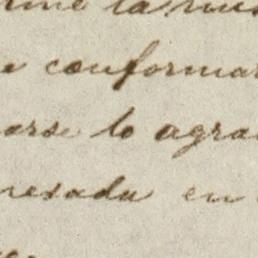 la mis
e conformar
arse lo agra
resada en